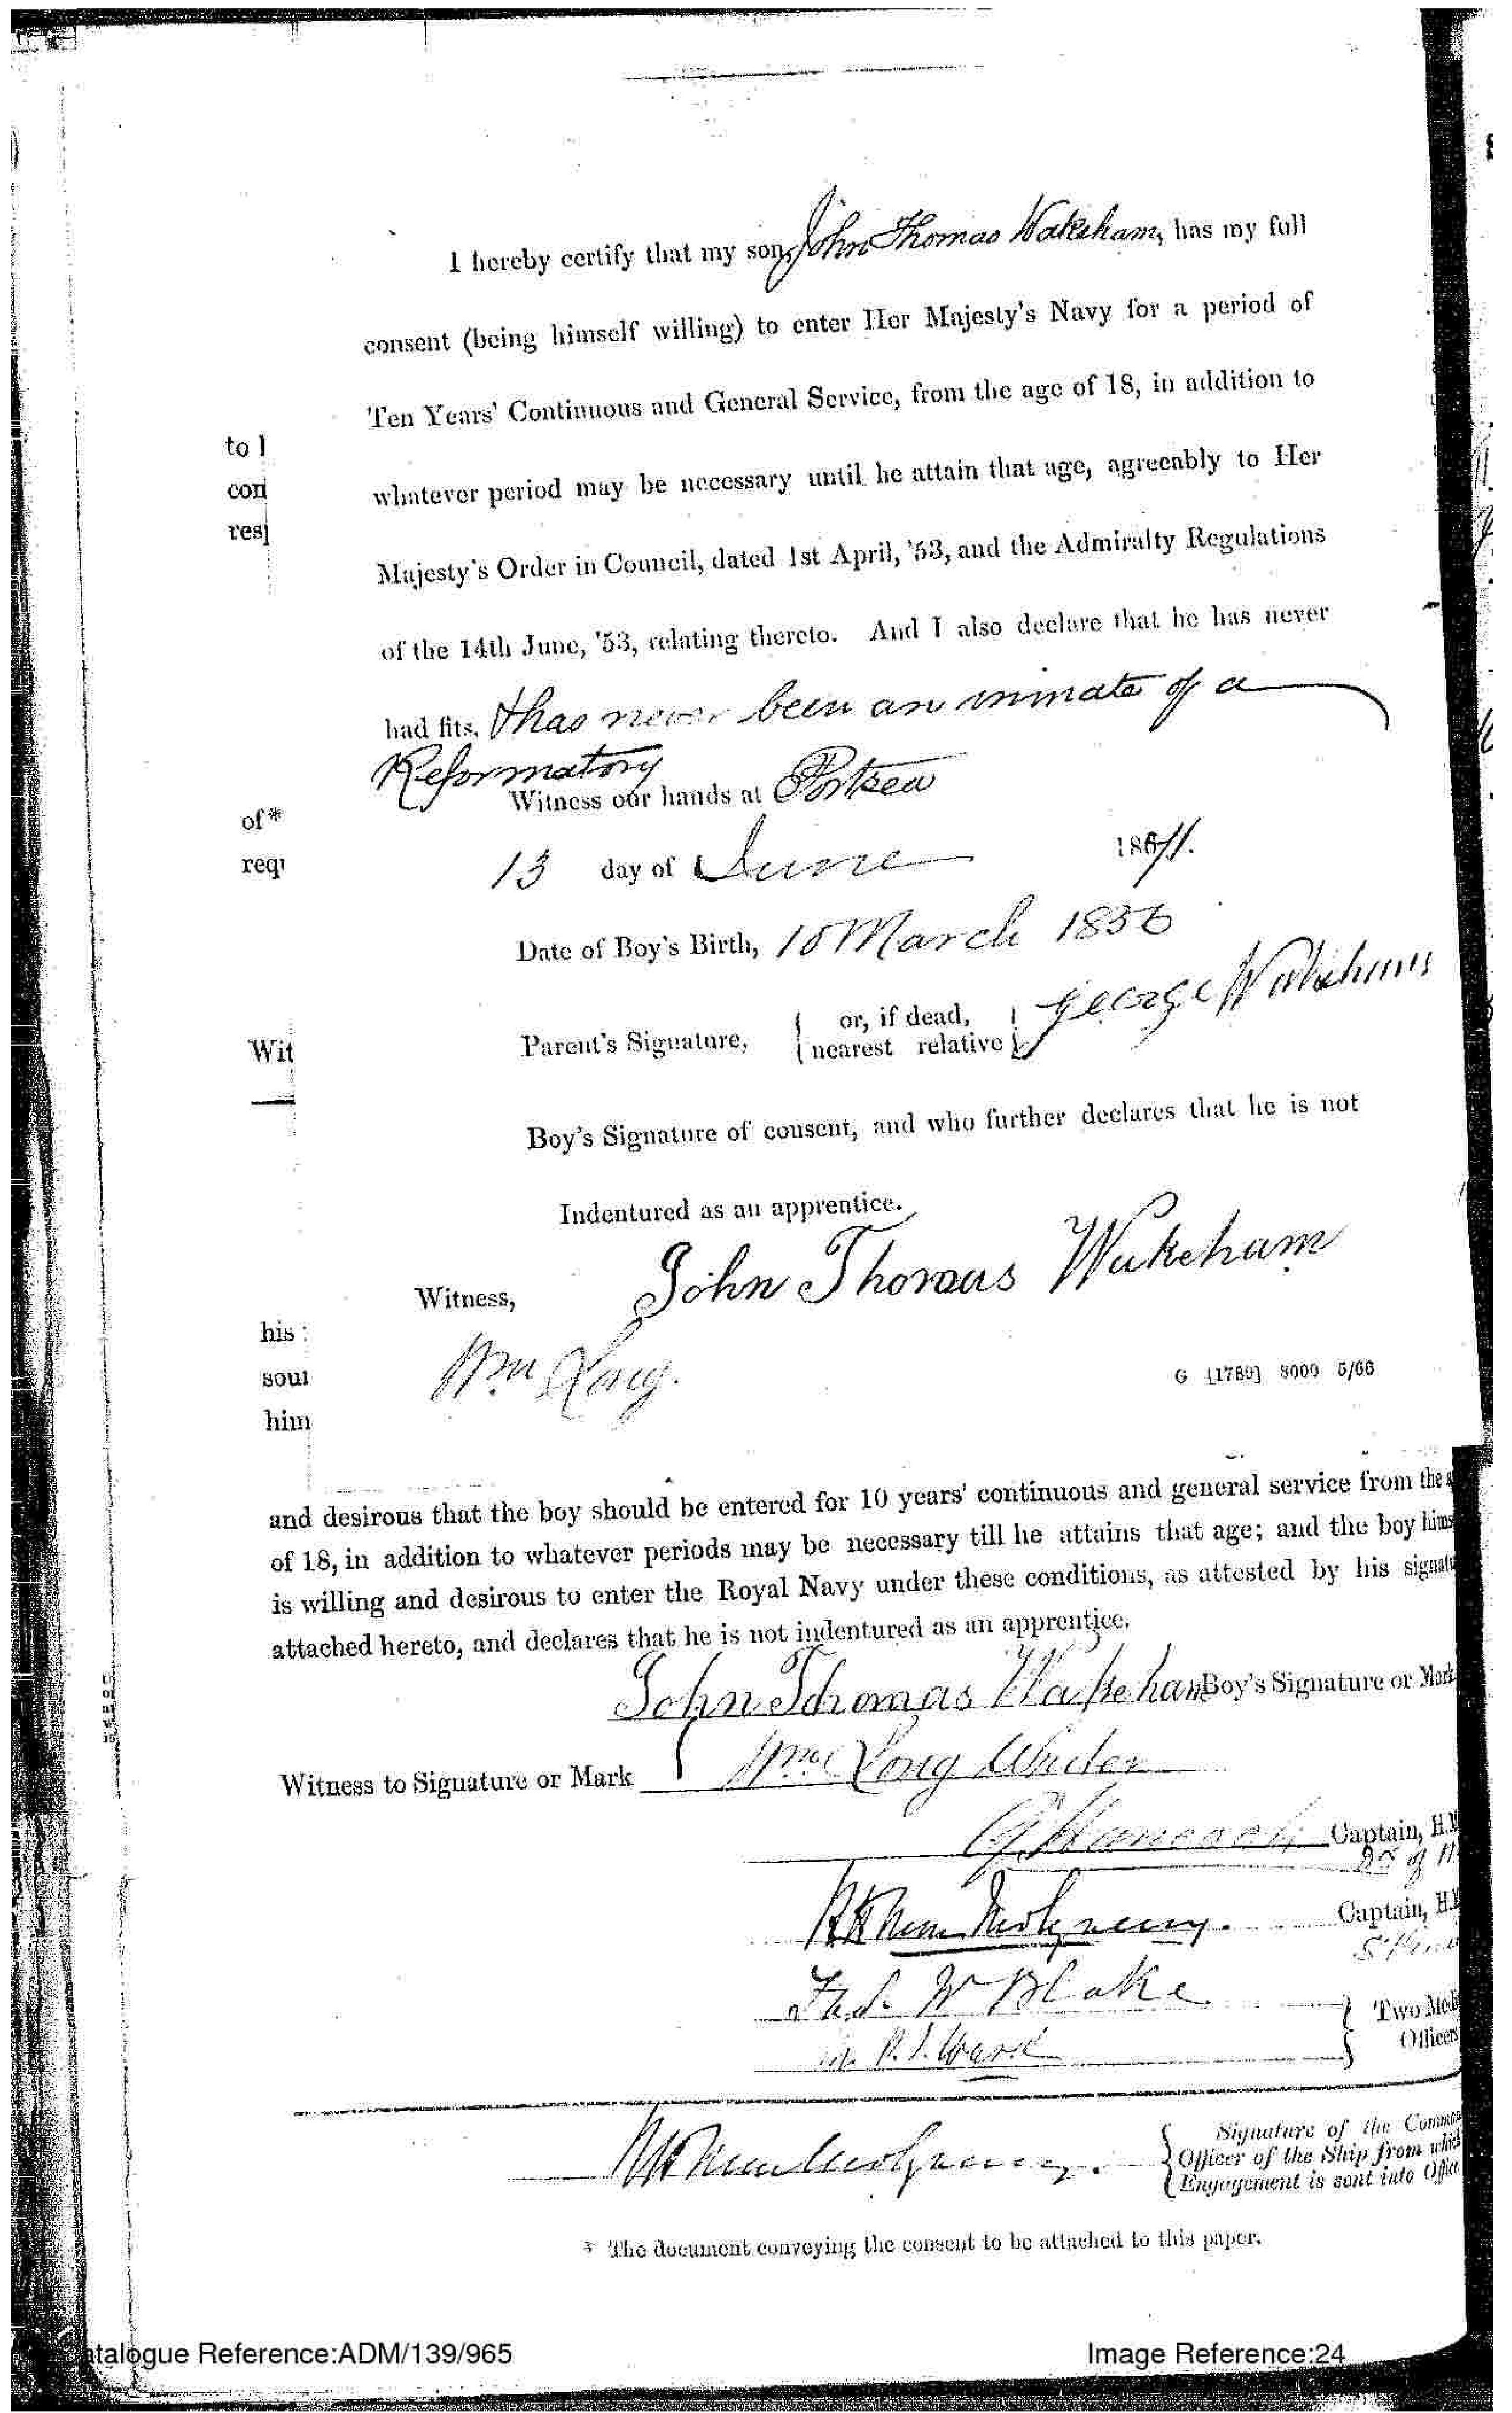 I hereby certify that my son, John Thomas Wakeham, has my full
consent (being himself willing) to enter Her Majesty's Navy for a period of
Ten Years' Continuous and General Service, from the age of 18, in addition to
to l
whatever period may be necessary until he attain that age, agreeably to Her
con
res
Majesty's Order in Council, dated 1st April, '53, and the Admiralty Regulations
of the 14th June, '53, relating thereto. And I also declare that he has never
had fits, & has never been an inmate of a
Reformatory
Witness our hands at Portsea
of*
requ
13 day of June 1871.
Date of Boy's Birth, 10 March 1856
Parent's Signature, { or, if dead, nearest relative } George Wakeham
Wit
Boy's Signature of consent, and who further declares that he is not
Indentured as an apprentice.
John Thomas Wakeham
Witness,
his
Wm Long.
G [1789] 8000 5/66
soul
him
and desirous that the boy should be entered for 10 years' continuous and general service from the
of 18, in addition to whatever periods may be necessary till he attains that age; and the boy hims
is willing and desirous to enter the Royal Navy under these conditions, as attested by his signatu
attached hereto, and declares that he is not indentured as an apprentice.
John Thomas Wakeham Boy's Signature or Mark
Witness to Signature or Mark { Wm Long Writer
G Hancock Captain, H.M
Captain, H.M
Fred. W Blake } Two Med
Ward Officers
{ Signature of the Comman
Officer of the Ship from which
Engagement is sent into Office
* The document conveying the consent to be attached to this paper.
atalogue Reference:ADM/139/965 Image Reference:24